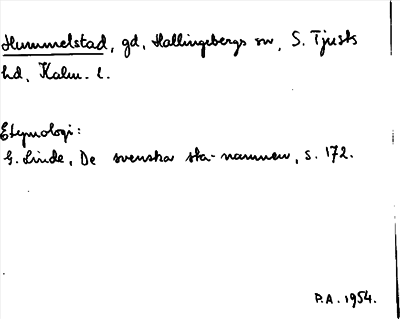 Hummelstad, gd, Hallingebergs sn, S. Tjusts
hd, Kalm. l.
Etymologi:
G. Linde, De svenska sta-namnen, s. 172.
P.A. 1954.